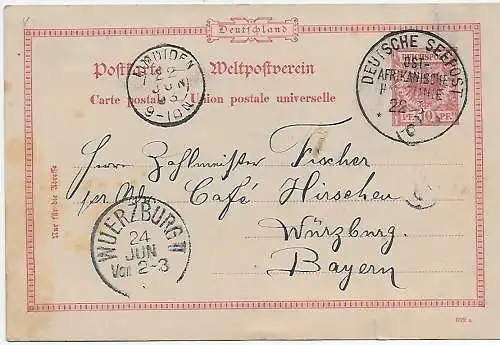 Deutschland
Postkarte Weltpostverein
Carte postale Union postale universelle
DEUTSCHE SEEPOST
OST-
AFRIKANISCHE
22
c
IJMUIDEN
Nur für die Adresse
Herrn Zahlmeister Fischer
Café Hirschen
Würzburg.
Bayern
WUERZBURG II
24
JUN
Vor 2-3